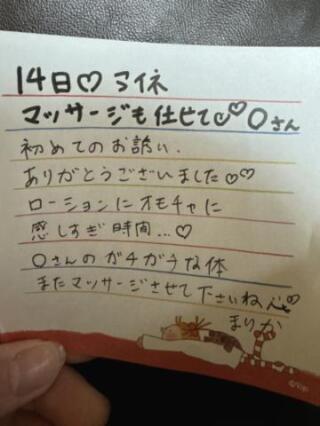 14日♡アイネ
マッサージも仕せて♡♡〇さん
初めてのお誘い、
ありがとうございました♡♡
ローションにオモチャに
感しすぎ時間...♡
〇さんのガチガチな体
またマッサージさせて下さいね♡
まりか